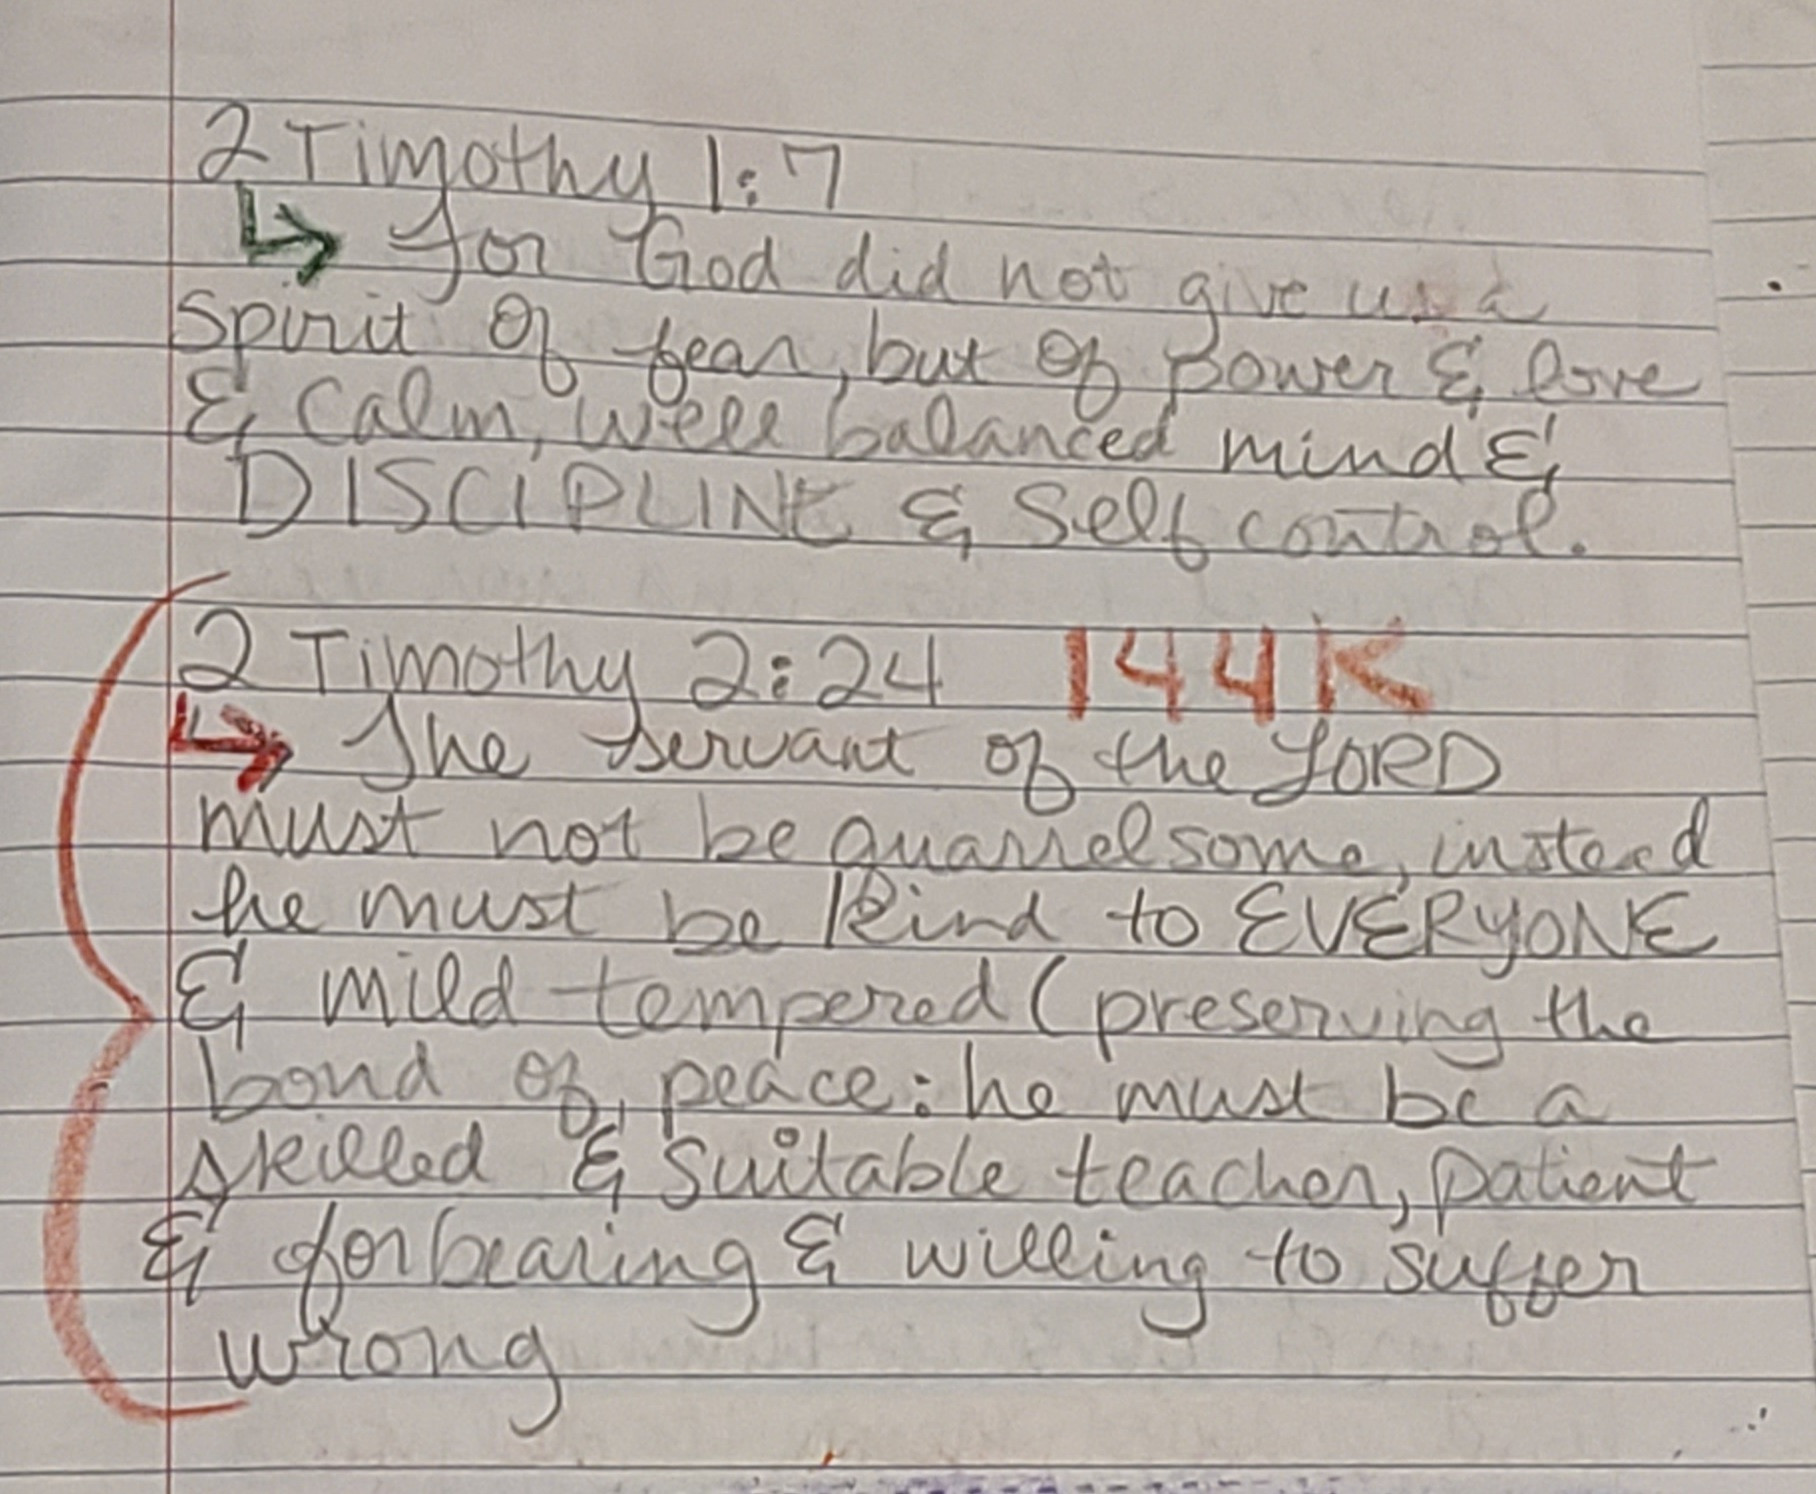 2 Timothy 1:7
↳ For God did not give us a
spirit of fear, but of power & love
& calm, well balanced mind &
DISCIPLINE & Self control.
2 Timothy 2:24 144K
↳ The servant of the LORD
must not be quarrelsome, instead
he must be kind to EVERYONE
& mild tempered (preserving the
bond of peace: he must be a
skilled & suitable teacher, patient
& forbearing & willing to suffer
wrong